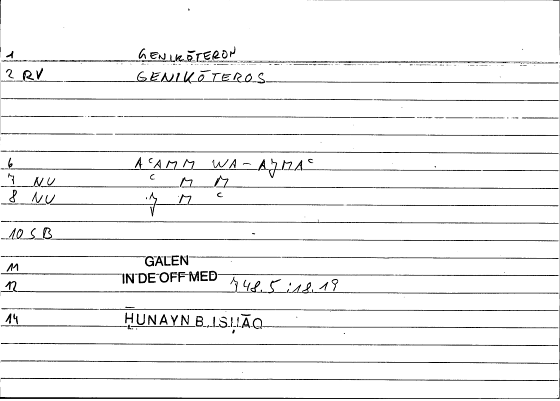 1 GENIKŌTERON
2 RV GENIKŌTEROS
6 AʿAMM WA-AǧMAʿ
7 NU ʿ M M
8 NU ǧ M ʿ
10 SB -
11 GALEN
12 IN DE OFF MED 748.5 ; 18.19
14 ḤUNAYN B. ISḤĀQ